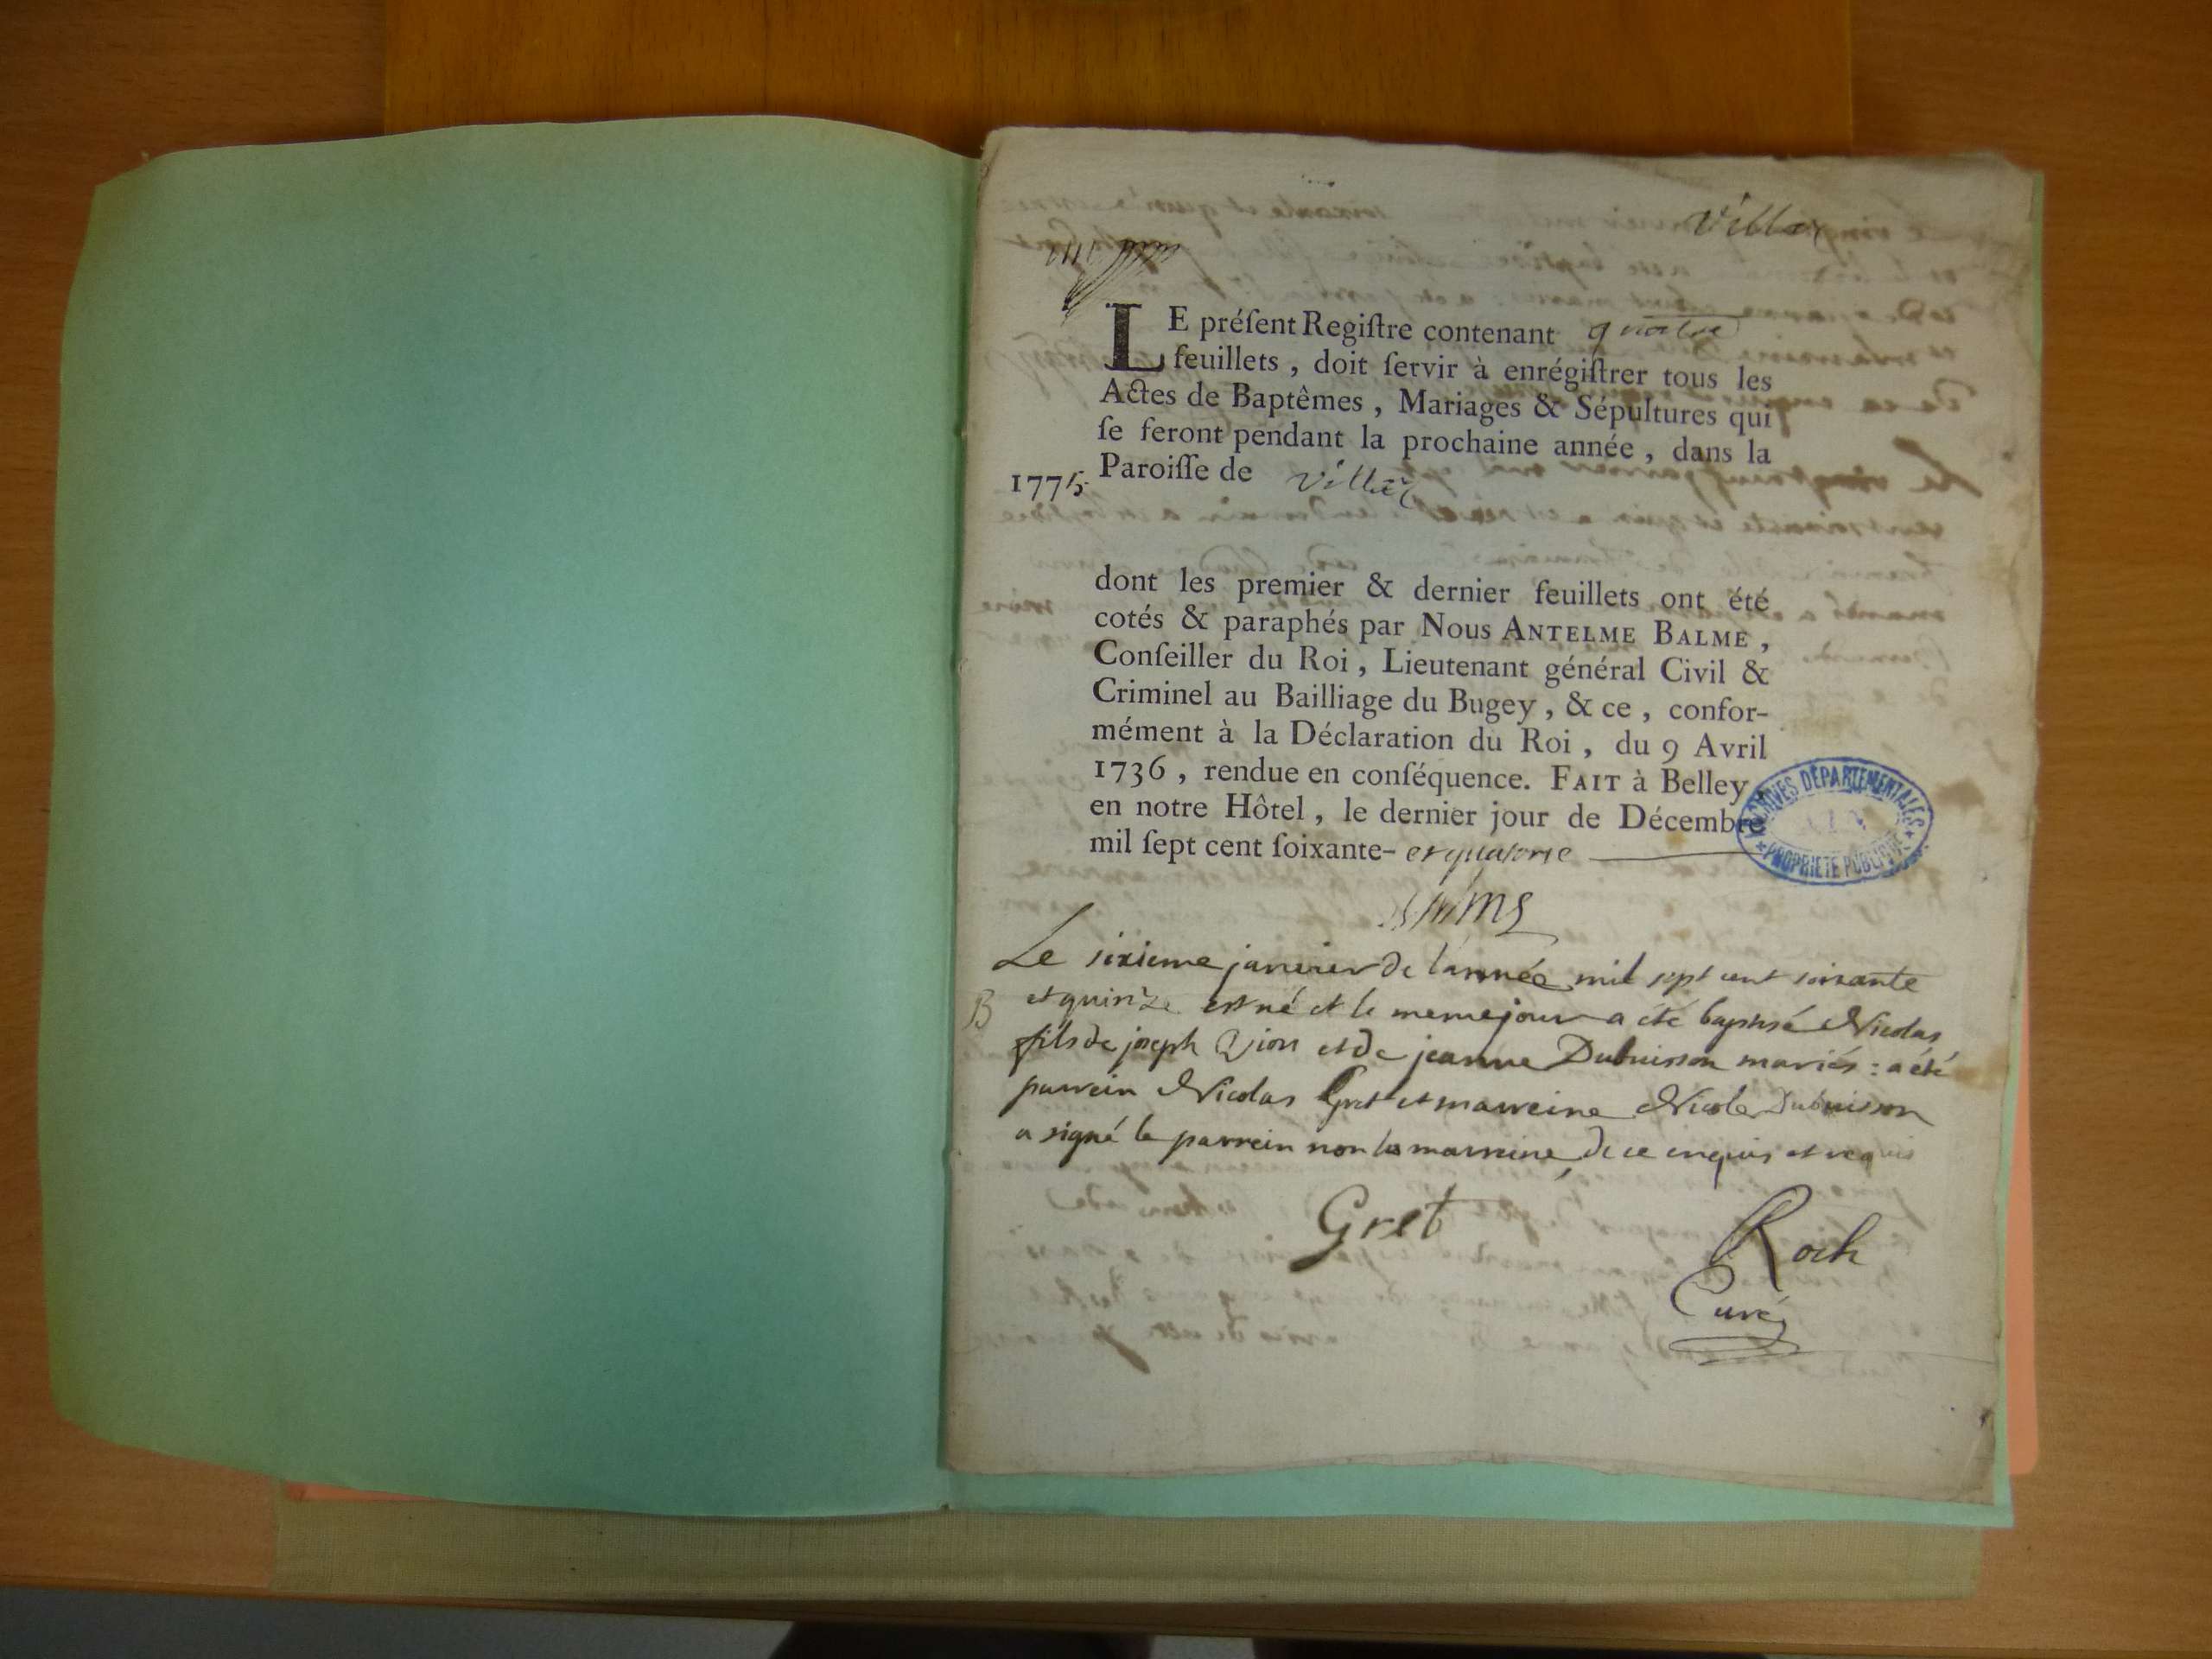 LE préſent Regiſtre contenant quatre
feuillets, doit ſervir à enrégiſtrer tous les
Actes de Baptêmes, Mariages & Sépultures qui
ſe feront pendant la prochaine année, dans la
1775. Paroiſſe de
dont les premier & dernier feuillets ont été
cotés & paraphés par Nous ANTELME BALME,
Conſeiller du Roi, Lieutenant général Civil &
Criminel au Bailliage du Bugey, & ce, confor-
mément à la Déclaration du Roi, du 9 Avril
1736, rendue en conſéquence. FAIT à Belley
en notre Hôtel, le dernier jour de Décembre
mil ſept cent ſoixante- et quatorze
ARCHIVES DÉPARTEMENTALES
AIN
PROPRIETE PUBLIQUE
Le sixieme janvier de l'année mil sept cent soixante
B et quinze est né et le meme jour a été baptisé Nicolas
fils de joseph Vion et de jeanne Dubuisson mariés : a été
parrein Nicolas Gret et marreine Nicole Dubuisson
a signé le parrein non la marreine de ce enquis et requis
Gret
Roch
Curé